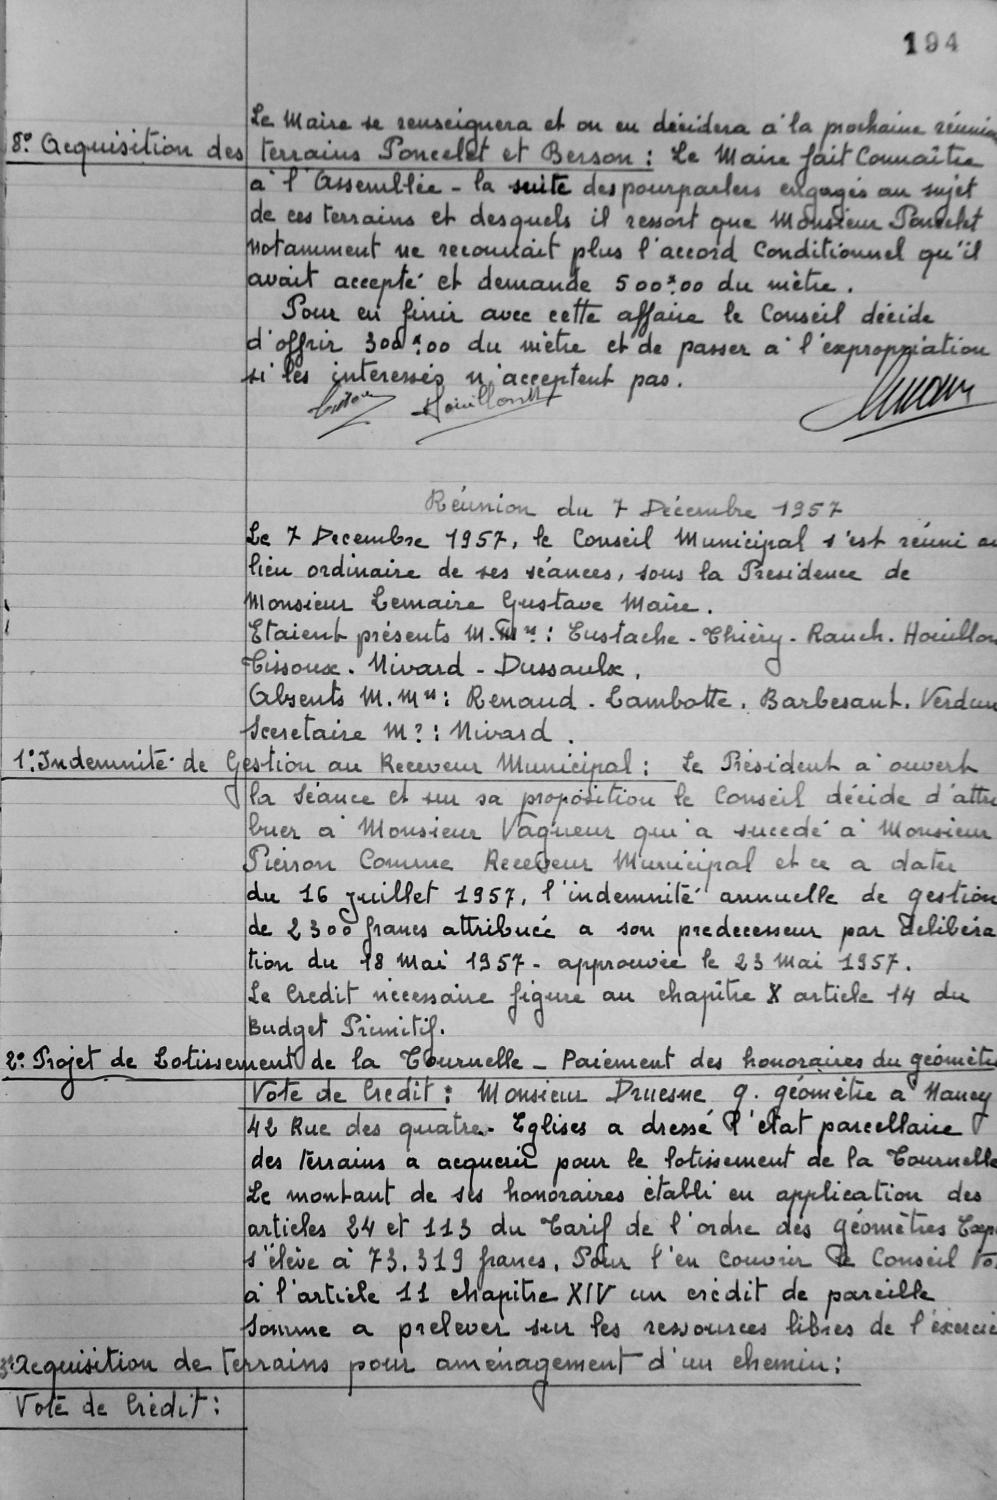 194
Le Maire se renseignera et on en décidera à la prochaine réunion
8° Acquisition des terrains Poncelet et Berson : Le Maire fait Connaître
à l'Assemblée - la suite des pourparlers engagés au sujet
de ces terrains et desquels il ressort que Monsieur Poncelet
Notamment ne reconnait plus l'accord Conditionnel qu'il
avait accepté et demande 500 00 du mètre.
Pour en finir avec cette affaire le Conseil décide
d'offrir 300 00 du mètre et de passer à l'expropriation
si les interessés n'acceptent pas.
Houillon
Réunion du 7 Décembre 1957
Le 7 Decembre 1957, le Conseil Municipal s'est réuni au
lieu ordinaire de ses séances, sous la Presidence de
Monsieur Lemaire Gustave Maire.
Etaient présents M.Mrs : Eustache - Thiéry - Rauch. Houillon
Tissoux. Nivard - Dussaulx.
Absents M.Mrs : Renaud - Lambotte. Barbesant. Verdun
Secretaire Mr : Nivard.
1° Indemnité de Gestion au Receveur Municipal : Le Président a ouvert
la séance et sur sa proposition le Conseil décide d'attri
buer à Monsieur Vagneur qui a sucedé à Monsieur
Pierron Comme Receveur Municipal et ce a dater
du 16 juillet 1957, l'indemnité annuelle de gestion
de 2300 francs attribuée a son predecesseur par delibéra
tion du 18 Mai 1957 - approuvée le 23 Mai 1957.
Le Credit nécessaire figure au chapitre X article 14 du
Budget Primitif.
2° Projet de Lotissement de la Tournelle - Paiement des honoraires du géomètre
Vote de Credit : Monsieur Druesne g. géomètre à Nancy
42 Rue des quatre-Eglises a dressé l'état parcellaire
des terrains a acquerir pour le lotissement de la Tournelle
Le montant de ses honoraires établi en application des
articles 24 et 113 du Tarif de l'ordre des géomètres Exp
s'élève à 73.319 francs. Pour l'en couvrir le Conseil vo
à l'article 11 chapitre XIV un crédit de pareille
Somme a prelever sur les ressources libres de l'exercic
3° Acquisition de terrains pour aménagement d'un chemin :
Vote de Crédit :